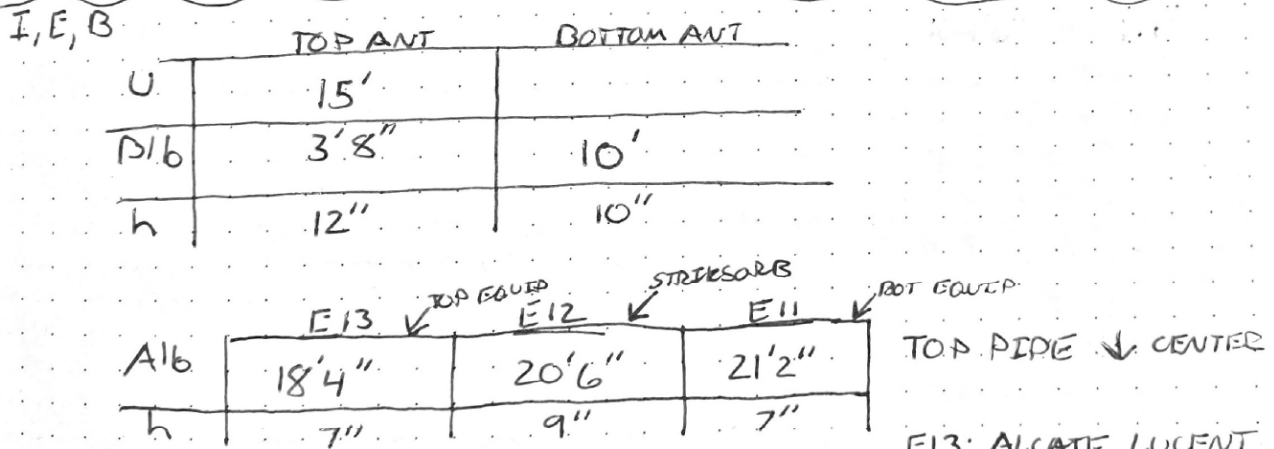 I, E, B
TOP ANT BOTTOM ANT
U 15'
B/b 3'8" 10'
h 12" 10"
TOP EQUIP STRIKSORB BOT EQUIP
E13 E12 E11
A/b 18'4" 20'6" 21'2" TOP PIPE ↓ CENTER
h 7" 9" 7"
E13: ALCATE LUCENT